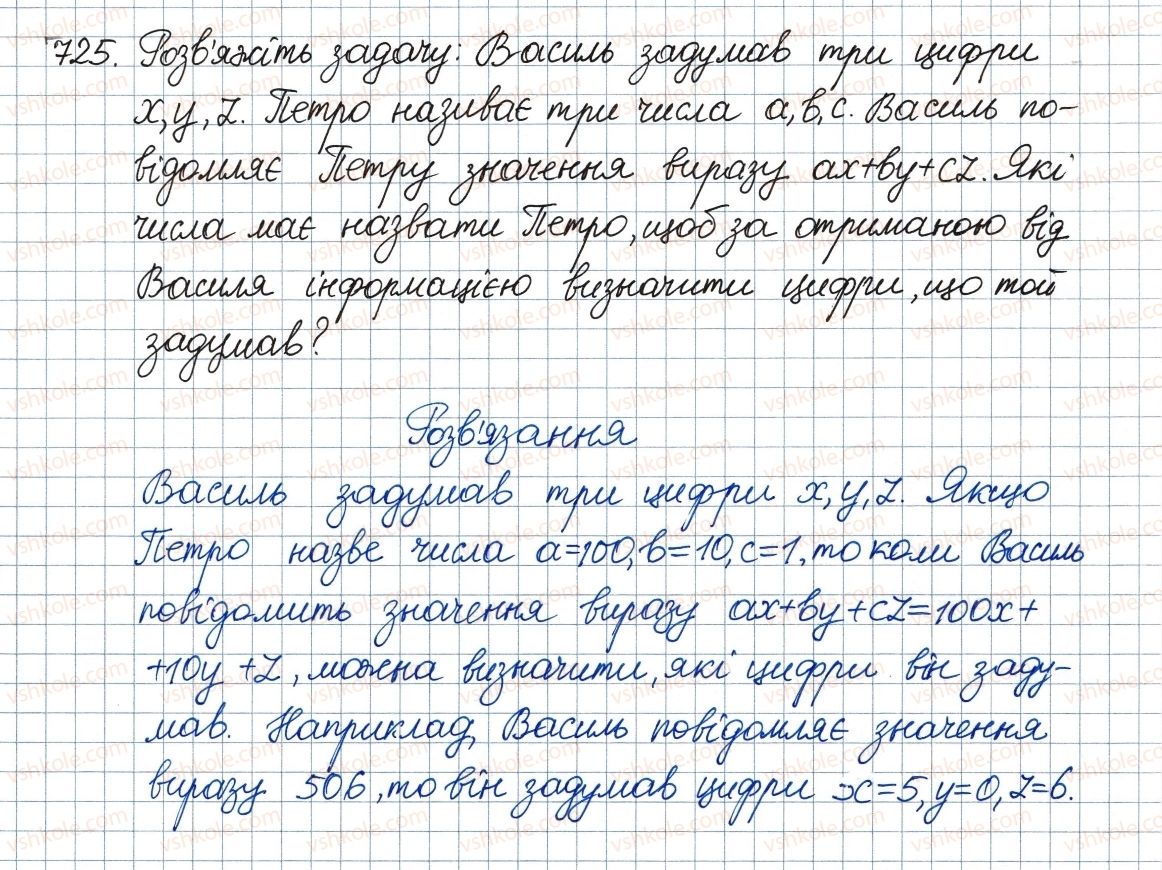 725. Розв'яжіть задачу: Василь задумав три цифри
x, y, z. Петро називає три числа a, b, c. Василь по-
відомляє Петру значення виразу ax+by+cz. Які
числа має назвати Петро, щоб за отриманою від
Василя інформацією визначити цифри, що той
задумав?
Розв'язання
Василь задумав три цифри x, y, z. Якщо
Петро назве числа a=100, b=10, c=1, то коли Василь
повідомить значення виразу ax+by+cz=100x+
+10y+z, можна визначити, які цифри він заду-
мав. Наприклад, Василь повідомляє значення
виразу 506, то він задумав цифри x=5, y=0, z=6.